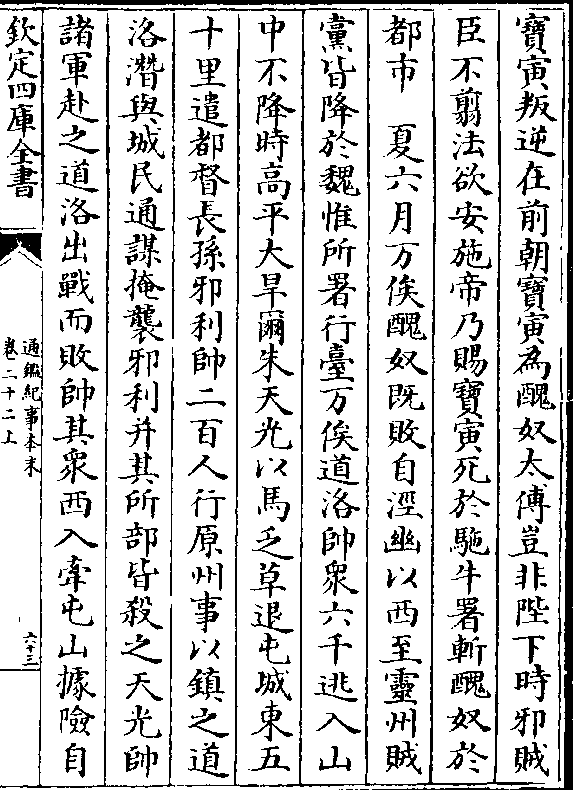 寶寅叛逆在前朝寶寅為醜奴太傅豈非陛下時邪賊
臣不翦法欲安施帝乃賜寶寅死於駞牛署斬醜奴於
都市　夏六月万俟醜奴既敗自涇豳以西至靈州賊
黨皆降於魏惟所署行臺万俟道洛帥衆六千逃入山
中不降時高平大旱爾朱天光以馬乏草退屯城東五
十里遣都督長孫邪利帥二百人行原州事以鎮之道
洛潛與城民通謀掩襲邪利并其所部皆殺之天光帥
諸軍赴之道洛出戰而敗帥其衆西入牽屯山據險自
欽定四庫全書
通鑑紀事本末
卷二十二上
六十三